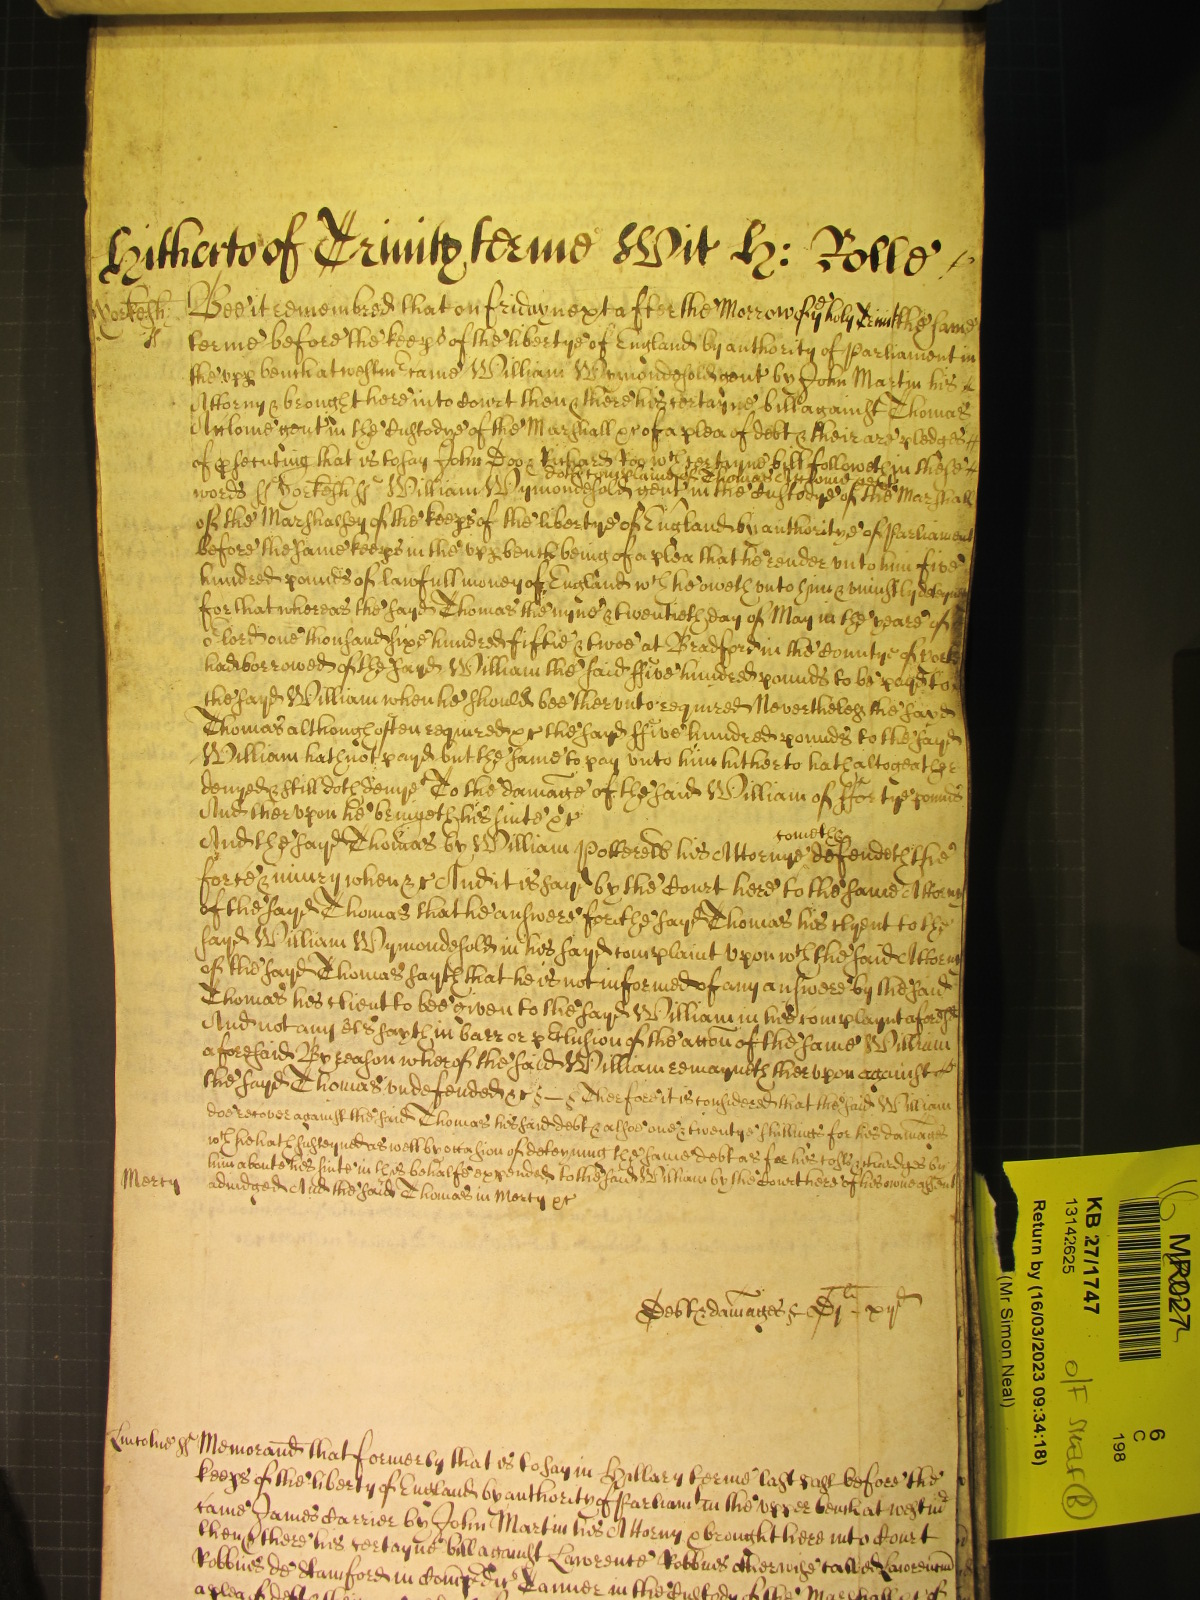 Hitherto of Trinity terme Wit H: Rolle
Yorkesh: ss Bee it remembred that on friday next after the Morrow of ye holy Trinit the same
terme before the keeps of the libertye of England by authority of Parliament in
the upp bench at westmr came William Wymondesold gent by John Martin his
Attorny & brought here into Court then & there his certayne bill against Thomas
gent in the Custodye of the Marshall &c of a plea of debt & their are pledges
of psecuting that is to say John Doo & Richard Roo wch certayne bill followeth in these
doth complaine of Thomas
words ss Yorkesh ss William Wymondesold gent in the Custodye of the Marshall
of the Marshalsey of the keeps of the libertye of England by authoritye of Parliament
before the same keeps in the upp bench being of a plea that he render unto him five
hundred pounds of lawfull money of England wch he oweth unto him & uniustly deteyneth
for that whereas the sayd Thomas the nyne & twentieth day of May in the yeare of
or lord one thousand sixe hundred fiftie & twoe at Bradford in the Countye of York
had borrowed of the sayd William the said ffive hundred pounds to be payd to
the sayd William when he should bee therunto required Neverthelesse the sayd
Thomas although often required &c the sayd ffive hundred pounds to the sayd
William hath not payd but the same to pay unto him hitherto hath altogeather
denyed & still doth denye To the damage of the said William of ffortye pounds
And therupon he bringeth his suite &c
cometh &
And the sayd Thomas by William Pottrells his Attornye defendeth the
force & iniury when &c And it is sayd by the Court here to the same Attorny
of the sayd Thomas that he answere for the sayd Thomas his clyent to the
sayd William Wymondesold in his sayd complaint upon wch the said Attorny
of the sayd Thomas sayth that he is not informed of any answere by the said
Thomas his client to bee given to the sayd William in his complaynt aforesd
And not any els sayth in barr or pclusion of the accon of the same William
aforesaid By reason wherof the said William remayneth therupon against
the sayd Thomas undefended &c Therfore it is considered that the said William
doe recover against the said Thomas his said debt & alsoe one & twentye shillings for his damages
wch he hath susteyned as well by occasion of deteyning the same debt as for his costs & chardges by
him about his suite in this behalfe expended to the said William by the Court here of his owne assent
Mercy adiudged And the said Thomas in Mercy &c
Debt & damages
Lincolne ss Memorand that formerly that is to say in Hillary terme last past before the
keeps of the liberty of England by authority of Parliamt in the upper bench at westmr
came James Carrier by John Martin his Attorny & brought here into Court
then & there his certayne bill against Lawrence Robbins otherwise called Lawrence
Robbins de Stamford in Tanner in the Custody of the Marshall &c of
MR027
KB 27/1747
13142625
Return by (16/03/2023 09:34:18)
(Mr Simon Neal)
6
C
198